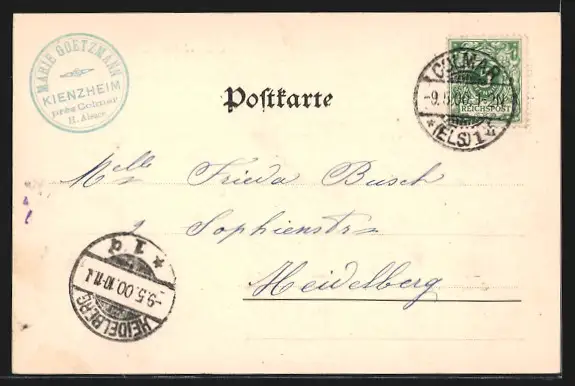 MARIE GOETZMANN
KIENZHEIM
près Colmar
H. Alsace
Postkarte
COLMAR
-9.5.00.
*(ELS)1
REICHSPOST
Melle Frieda Busch
Sophienstr
Heidelberg
*1d
-9.5.00.10-11.
HEIDELBERG